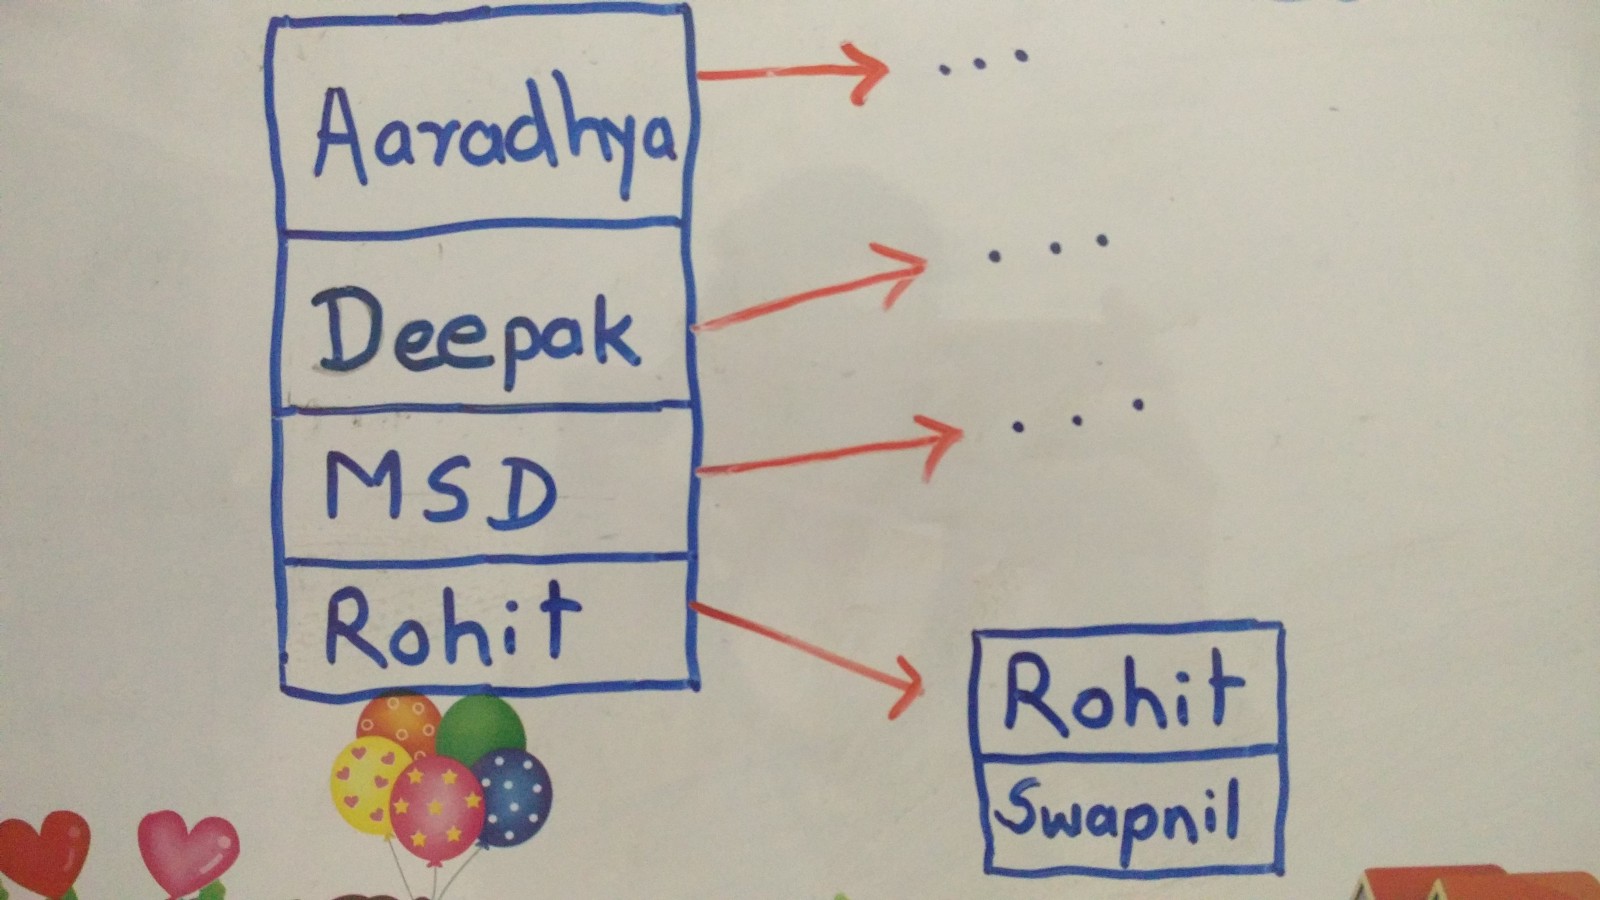 Aaradhya ...
Deepak ...
MSD ...
Rohit
Rohit
Swapnil